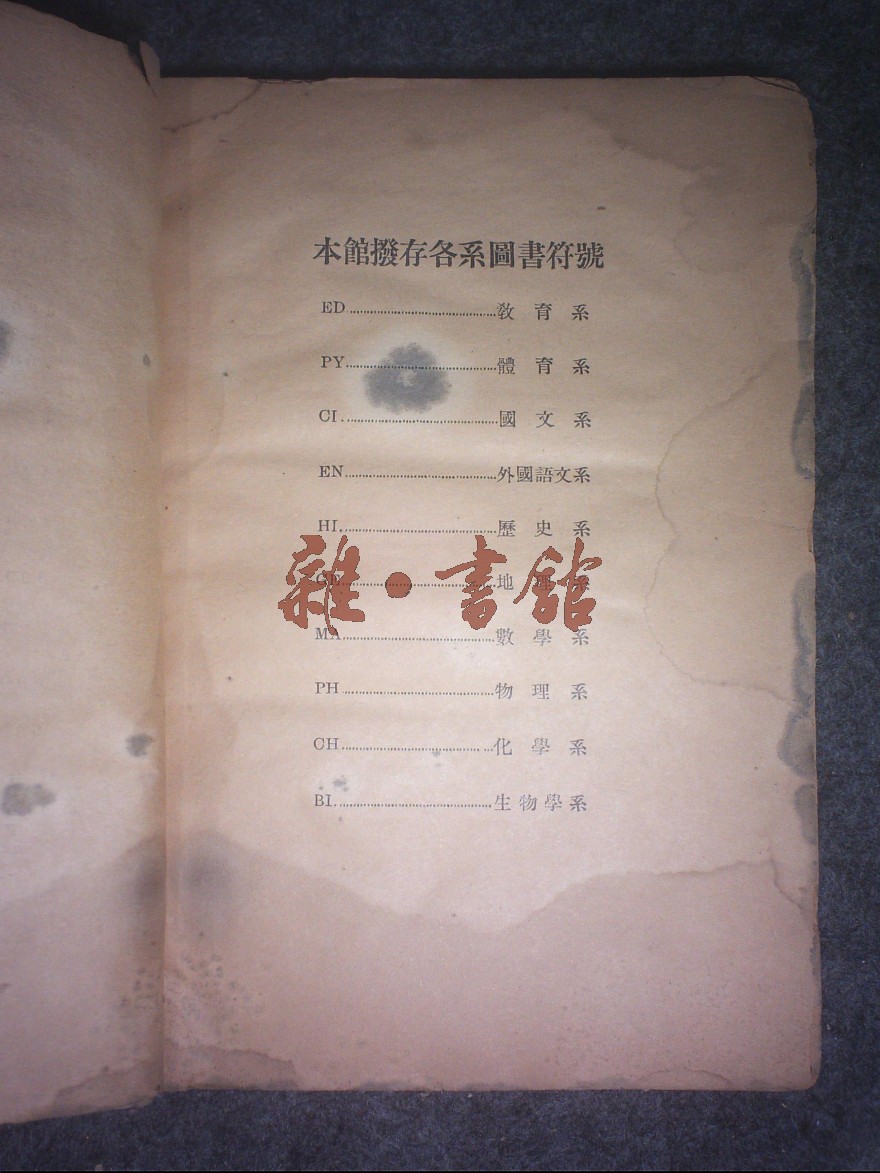 本館撥存各系圖書符號
ED............教育系
PY............體育系
CI............國文系
EN............外國語文系
HI............歷史系
GE............地理系
MA............數學系
PH............物理系
CH............化學系
BI............生物學系
雜·書館